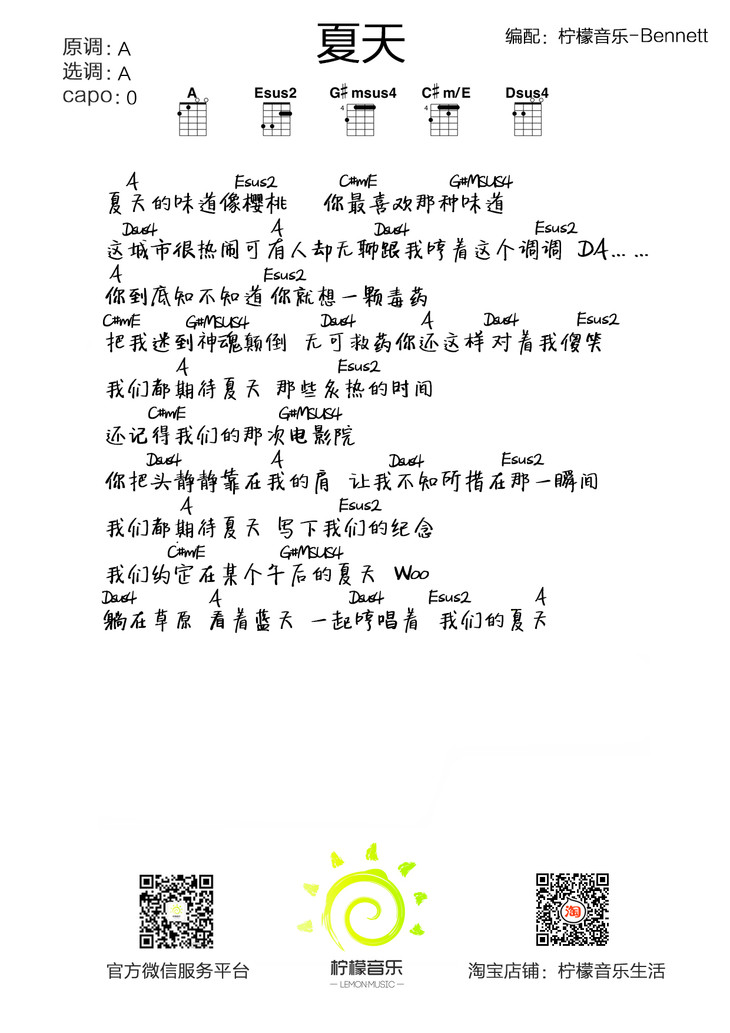 夏天
编配：柠檬音乐-Bennett
原调：A
选调：A
capo：0
A Esus2 G#msus4 C#m/E Dsus4
4 4
A Esus2 C#m/E G#Msus4
夏天的味道像樱桃 你最喜欢那种味道
Dsus4 A Dsus4 Esus2
这城市很热闹可有人却无聊跟我哼着这个调调 DA... ...
A Esus2
你到底知不知道你就想一颗毒药
C#m/E G#Msus4 Dsus4 A Dsus4 Esus2
把我迷到神魂颠倒 无可救药你还这样对着我傻笑
A Esus2
我们都期待夏天 那些炙热的时间
C#m/E G#Msus4
还记得我们的那次电影院
Dsus4 A Dsus4 Esus2
你把头静静靠在我的肩 让我不知所措在那一瞬间
A Esus2
我们都期待夏天 写下我们的纪念
C#m/E G#Msus4
我们约定在某个午后的夏天 Woo
Dsus4 A Dsus4 Esus2 A
躺在草原 看着蓝天 一起哼唱着 我们的夏天
淘
柠檬音乐
— LEMON MUSIC —
官方微信服务平台
淘宝店铺：柠檬音乐生活